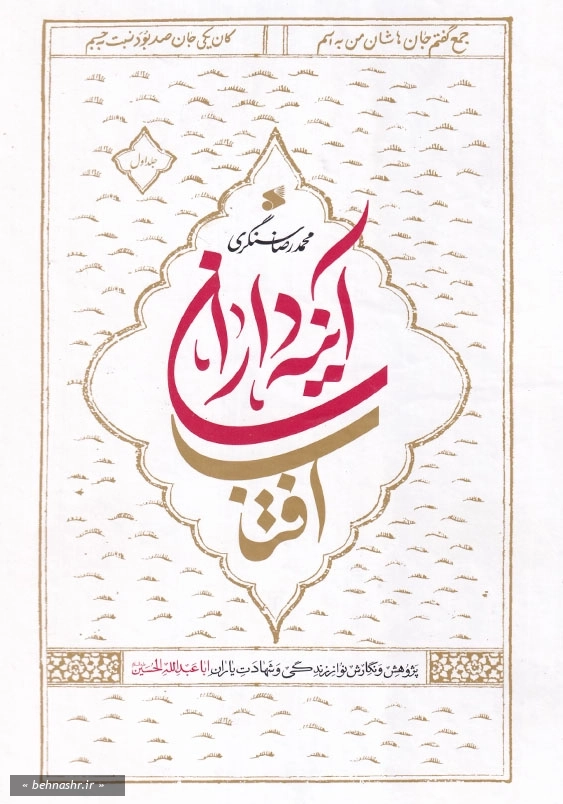 جمع گفتم جان هاشان من به اسم
کان یکی جان صد بود نسبت به جسم
جلد اول
محمدرضا سنگری
آینه داران
آفتاب
پژوهش و نگارش نو از زندگی و شهادت یاران اباعبدالله الحسین
« behnashr.ir »